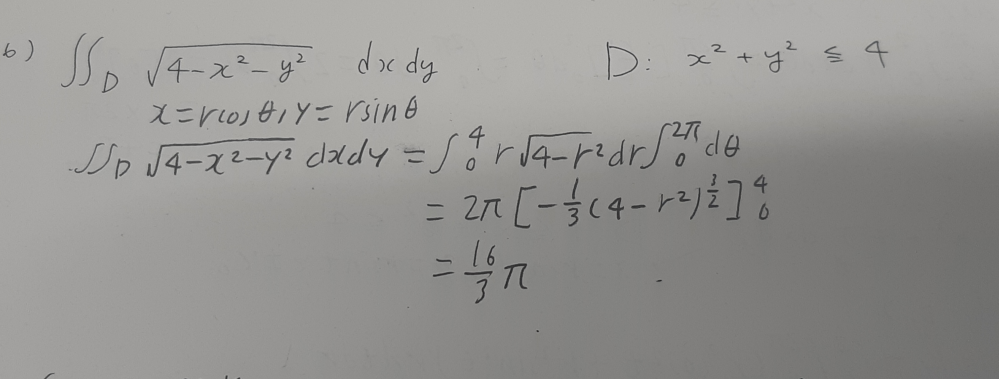 b) ∬_D √(4-x²-y²) dx dy D: x² + y² ≦ 4
x=rcosθ, y=rsinθ
∬_D √(4-x²-y²) dxdy = ∫_0^4 r√(4-r²) dr ∫_0^{2π} dθ
= 2π [-1/3 (4-r²)^{3/2}]_0^4
= 16/3 π